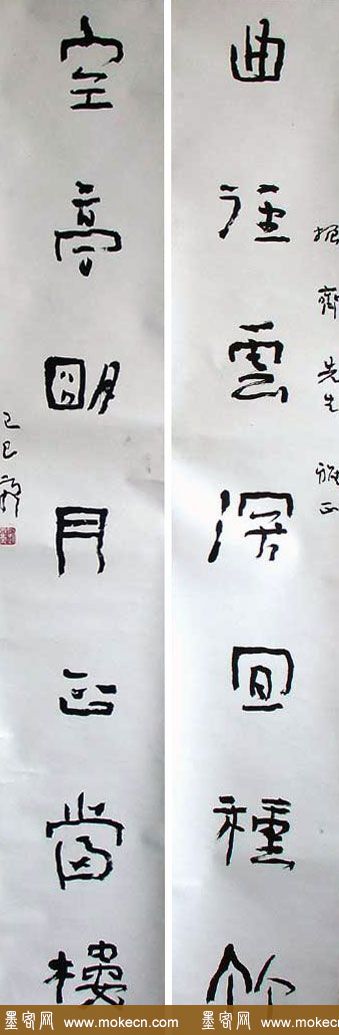 振齊先生 雅正
曲徑雲深宜種竹
空亭明月正當樓
己巳
墨客网 www.mokecn.com 墨客网 www.mokecn.com